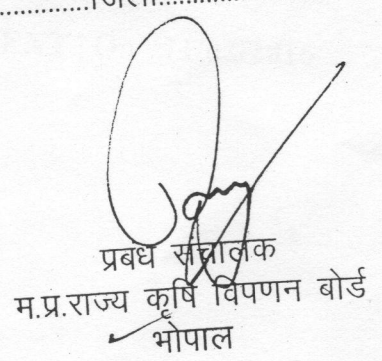 ............जिला............
प्रबंध संचालक
म.प्र.राज्य कृषि विपणन बोर्ड
भोपाल